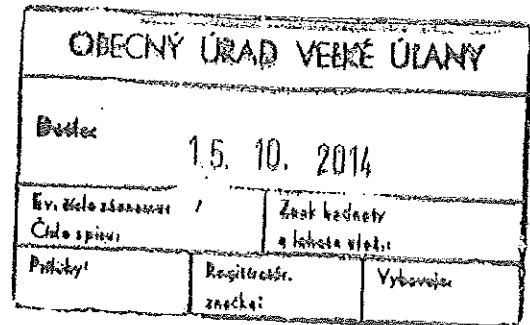 OBECNÝ ÚRAD VEĽKÉ ÚĽANY
Došlo:
15. 10. 2014
Ev. číslo záznamu:
Číslo spisu:
Znak hodnoty
a lehota ulož.:
Prílohy:
Registratúr.
značka:
Vybavuje: